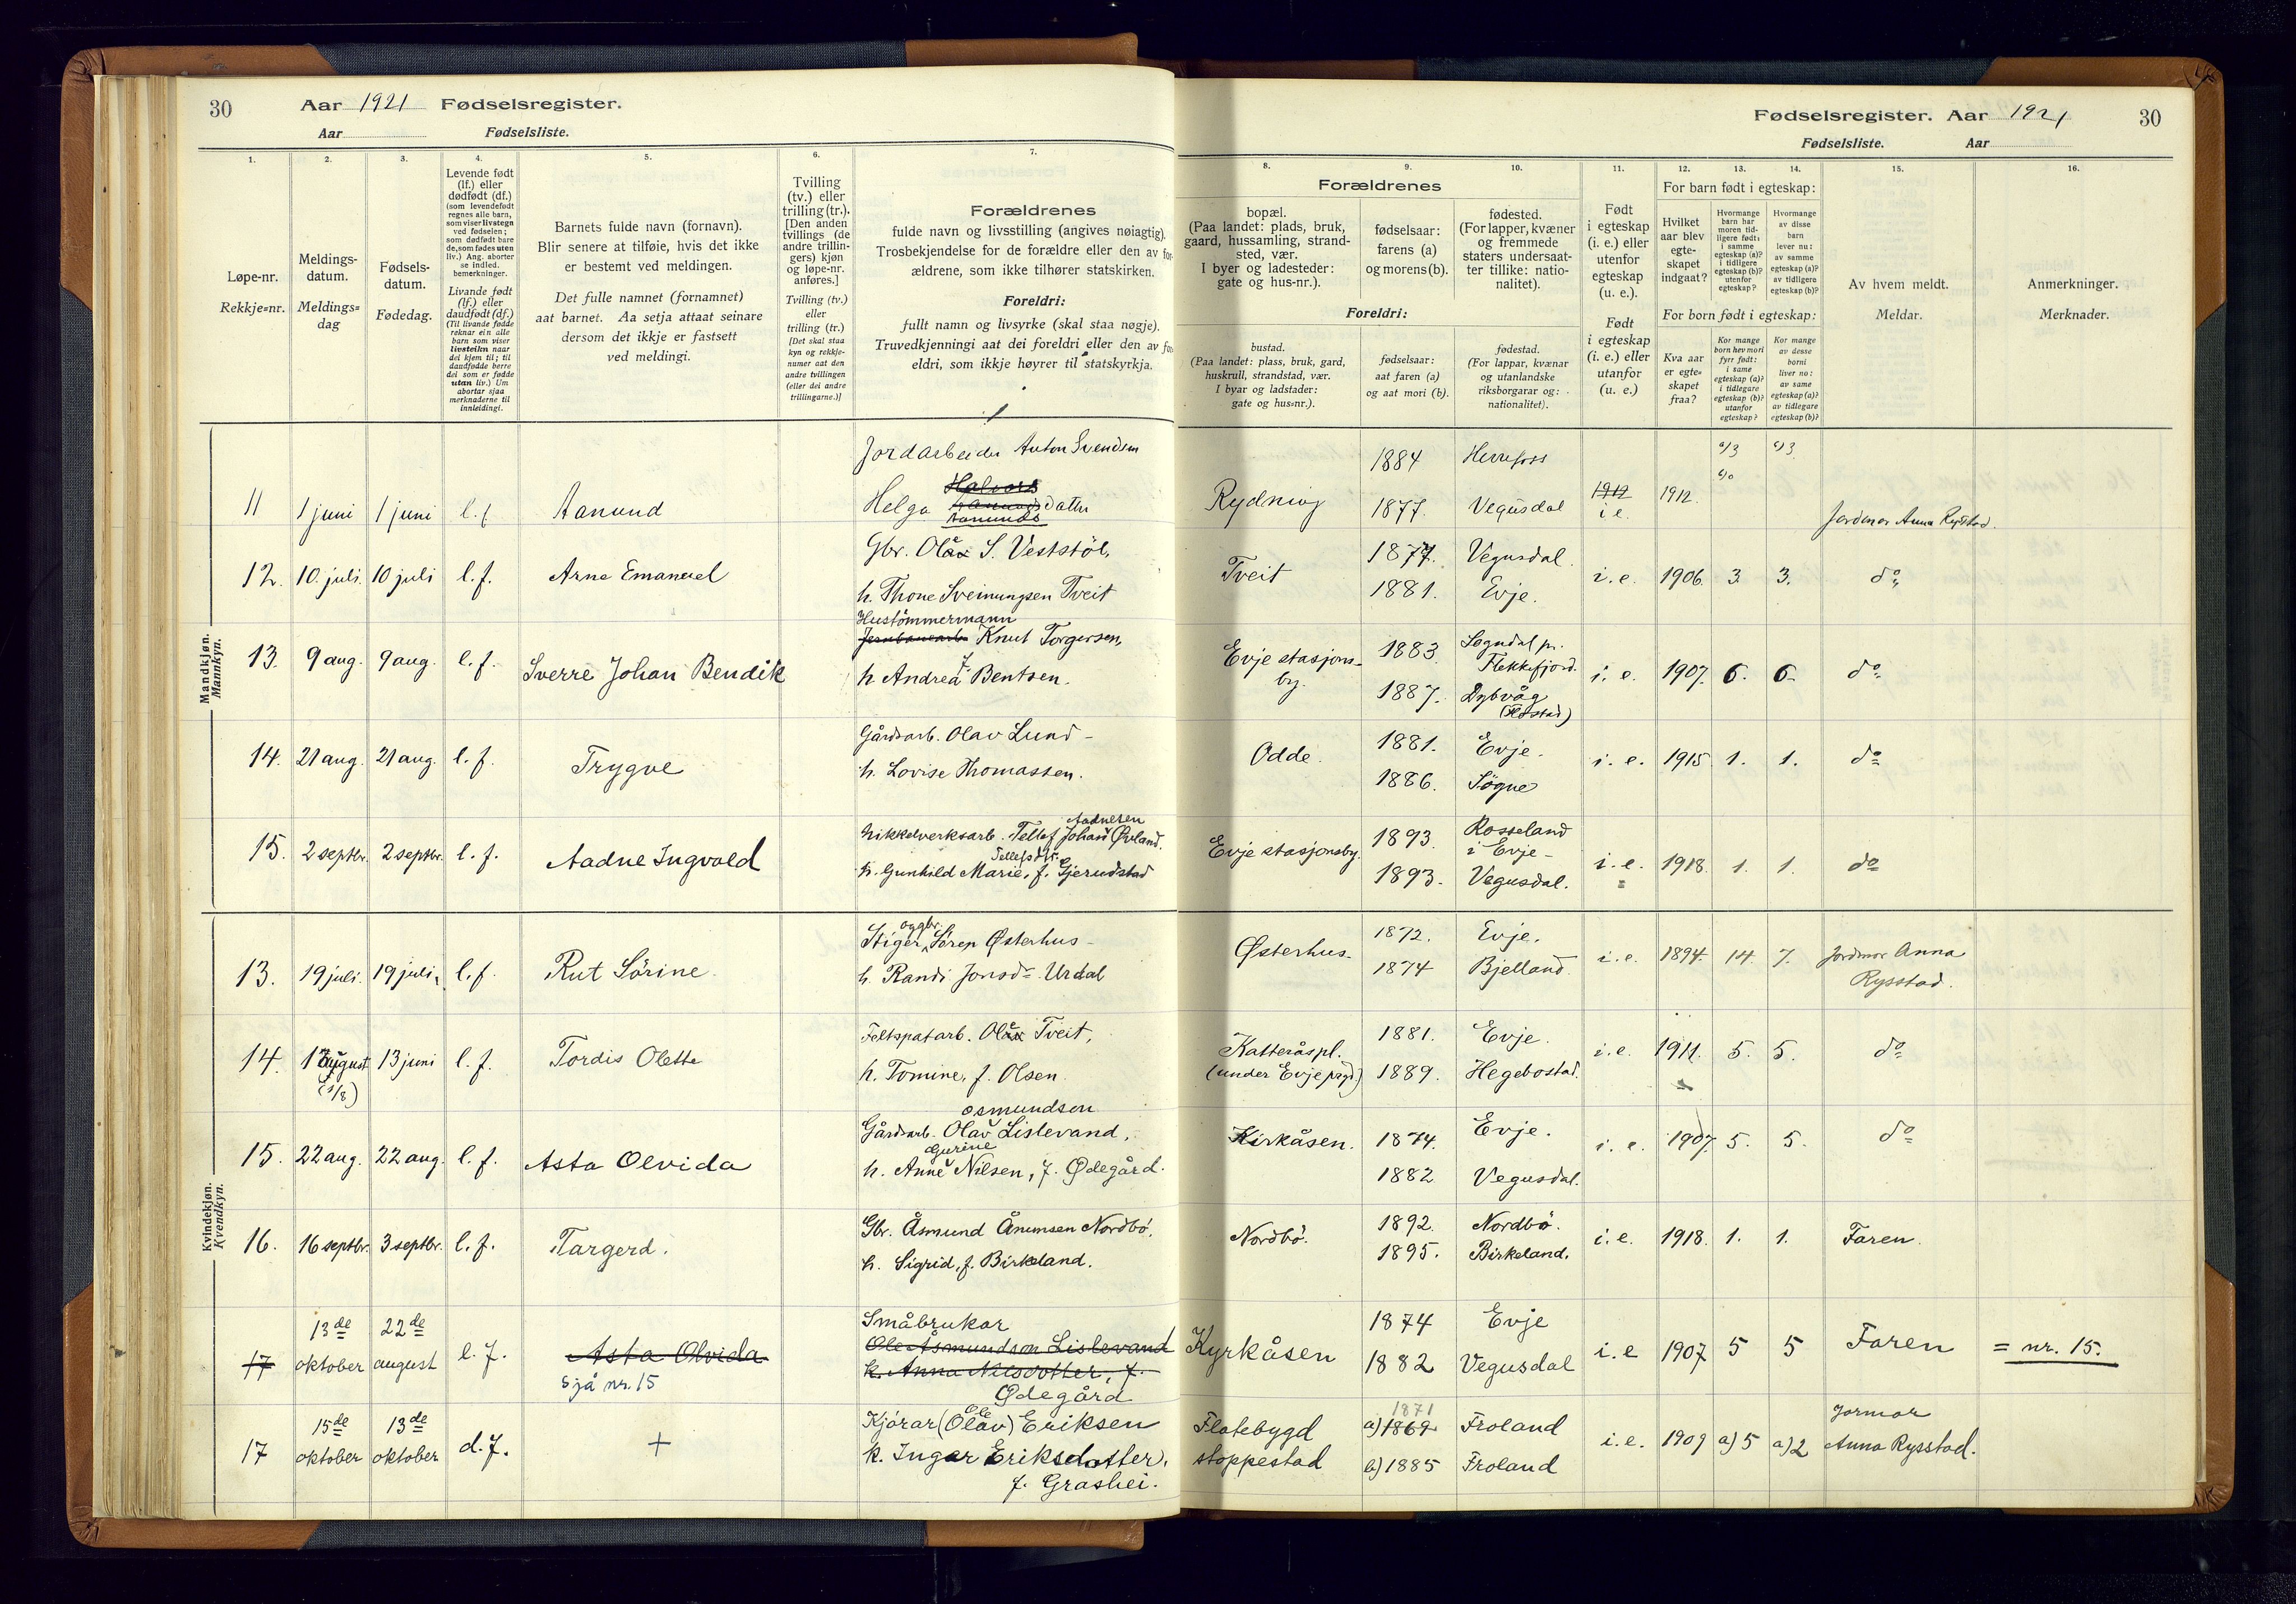 30 Aar 1921 Fødselsregister.
Aar Fødselsliste.
1. 2. 3. 4. 5. 6. 7.
Løpe-nr.
Rekkje=nr.
Meldings-
datum.
Meldings=
dag
Fødsels-
datum.
Fødedag.
Levende født
(lf.) eller
dødfødt (df.)
(som levendefødt
regnes alle barn,
som viser livstegn
ved fødselen;
som dødfødt bare
de, som fødes uten
liv.) Ang. aborter
se indled.
bemerkninger.
Livande født
(lf.) eller
daudfødt (df.)
(Til livande fødde
reknar ein alle
barn som viser
livsteikn naar
dei kjem til; til
daudfødde berre
dei som er fødde
utan liv.) Um
abortar sjaa
merknaderne til
innleidingi.
Barnets fulde navn (fornavn).
Blir senere at tilføie, hvis det ikke
er bestemt ved meldingen.
Det fulle namnet (fornamnet)
aat barnet. Aa setja attaat seinare
dersom det ikkje er fastsett
ved meldingi.
Tvilling
(tv.) eller
trilling (tr.).
[Den anden
tvillings (de
andre trillin-
gers) kjøn
og løpe-nr.
anføres.]
Tvilling (tv.)
eller
trilling (tr.)
[Det skal staa
kyn og rekkje-
numer aat den
andre tvillingen
(eller dei andre
trillingarne.)]
Forældrenes
fulde navn og livsstilling (angives nøiagtig).
Trosbekjendelse for de forældre eller den av for-
ældrene, som ikke tilhører statskirken.
Foreldri:
fullt namn og livsyrke (skal staa nøgje).
Truvedkjenningi aat dei foreldri eller den av for-
eldri, som ikkje høyrer til statskyrkja.
Mandkjøn.
Mannkyn.
11 1 juni 1 juni l.f. Aanund
Jordarbeider Anton Svendsen
Helga Halvors
Aanunds datter
12. 10. juli. 10 juli l.f. Arne Emanuel
Gbr. Olav S. Veststöl,
h. Thone Sveinungsen Tveit
13. 9 aug. 9 aug. l.f. Sverre Johan Bendik
Hustömmermann
Jernbanearb. Knut Torgersen,
h. Andrea Bentsen.
14. 21 aug. 21 aug. l.f. Trygve
Gårdsarb. Olav Lund-
h. Lovise Thomassen.
15. 2 septbr. 2 septbr. l.f. Aadne Ingvald
Aadnesen
Nikkelverksarb. Tellef Johan Øvland.
Tellefsdtr.
h. Gunhild Marie, f. Gjerudstad
Kvindekjøn.
Kvendkyn.
13. 19 juli. 19 juli. l.f. Rut Sörine
og gbr.
Stiger, Sören Østerhus-
h. Randi Jonsd= Urdal
14. august 13 juni l.f. Tordis Olette
(1/8)
Feltspatarb. Olav Tveit,
h. Tomine, f. Olsen.
15. 22 aug. 22 aug. l.f. Asta Olvida
Osmundsen
Gårdsarb. Olav Lislevand,
Gurine
h. Anne Nilsen, f. Ødegård.
16. 16 septbr. 3 septbr. l.f. Targerd.
Gbr. Åsmund Ånunsen Nordbö.
h. Sigrid, f. Birkeland.
17 13de oktober 22de august l.f. Asta Olvida
Sjå nr. 15
Småbrukar
Ole Åsmundson Lislevand
k. Anna Nilsdotter, f.
Ødegård
17 15de oktober 13de oktober d.f. +
Ole
Kjörar (Olav) Eriksen
k. Inger Eriksdotter,
f. Grashei.
Fødselsregister. Aar 1921 30
Fødselsliste. Aar
8. 9. 10. 11. 12. 13. 14. 15. 16.
Forældrenes
bopæl.
(Paa landet: plads, bruk,
gaard, hussamling, strand-
sted, vær.
I byer og ladesteder:
gate og hus-nr.).
fødselsaar:
farens (a)
og morens (b).
fødested.
(For lapper, kvæner
og fremmede
staters undersaat-
ter tillike: natio-
nalitet).
Foreldri:
bustad.
(Paa landet: plass, bruk, gard,
huskrull, strandstad, vær.
I byar og ladstader:
gate og hus=nr.).
fødselsaar:
aat faren (a)
og aat mori (b).
fødestad.
(For lappar, kvænar
og utanlandske
riksborgarar og:
nationalitet).
Født
i egteskap
(i. e.) eller
utenfor
egteskap
(u. e.).
Født
i egteskap
(i. e.) eller
utanfor
(u. e.)
For barn født i egteskap:
Hvilket
aar blev
egte-
skapet
indgaat?
Hvormange
barn har
moren tid-
ligere født:
i samme
egteskap (a)?
i tidligere
egteskap (b)?
utenfor
egteskap?
Hvormange
av disse
barn
lever nu:
av samme
egteskap (a)?
av tidligere
egteskap (b)?
For born født i egteskap:
Kva aar
er egte=
skapet
fraa?
Kor mange
born hev mori
fyrr født:
i same
egteskap (a)?
i tidlegare
egteskap (b)?
utanfor
egteskap?
Kor mange
av desse
borni
liver no:
av same
egteskap (a)?
av tidlegare
egteskap (b)?
Av hvem meldt.
Meldar.
Anmerkninger.
Merknader.
Rydning 1884 Herefoss
1877. Vegusdal 1912 i e. 1912. a/3 a/3 Jordmor Anna Rysstad.
Tveit 1877. Vegusdal.
1881. Evje. i. e. 1906. 3. 3. do
Evje stasjons-
by. 1883. Sogndal pr.
Flekkefjord.
1887. Dybvåg i. e. 1907. 6. 6. do
Odde. 1881. Evje.
1886. Sögne i. e. 1915 1. 1. do
Evje stasjonsby. 1893. Rosseland
i Evje-
1893. Vegusdal. i. e. 1918. 1. 1. do
Østerhus. 1872. Evje.
1874 Bjelland. i. e. 1894. 14. 7. Jordmor Anna
Rysstad.
Katteråspl.
(under Evje prgd.) 1881. Evje.
1889. Hegebostad. i. e. 1911. 5. 5. do
Kirkåsen. 1874. Evje.
1882 Vegusdal. i. e. 1907. 5. 5. do
Nordbö. 1892. Nordbö.
1895. Birkeland. i. e. 1918. 1. 1. Faren.
Kyrkåsen 1874 Evje
1882 Vegusdal i. e 1907 5 5 Faren = nr. 15.
Flatebygd
stoppestad 1871
a) 1869 Froland
b) 1885 Froland i. e. 1909 a) 5 a) 2 Jormor
Anna Rysstad.